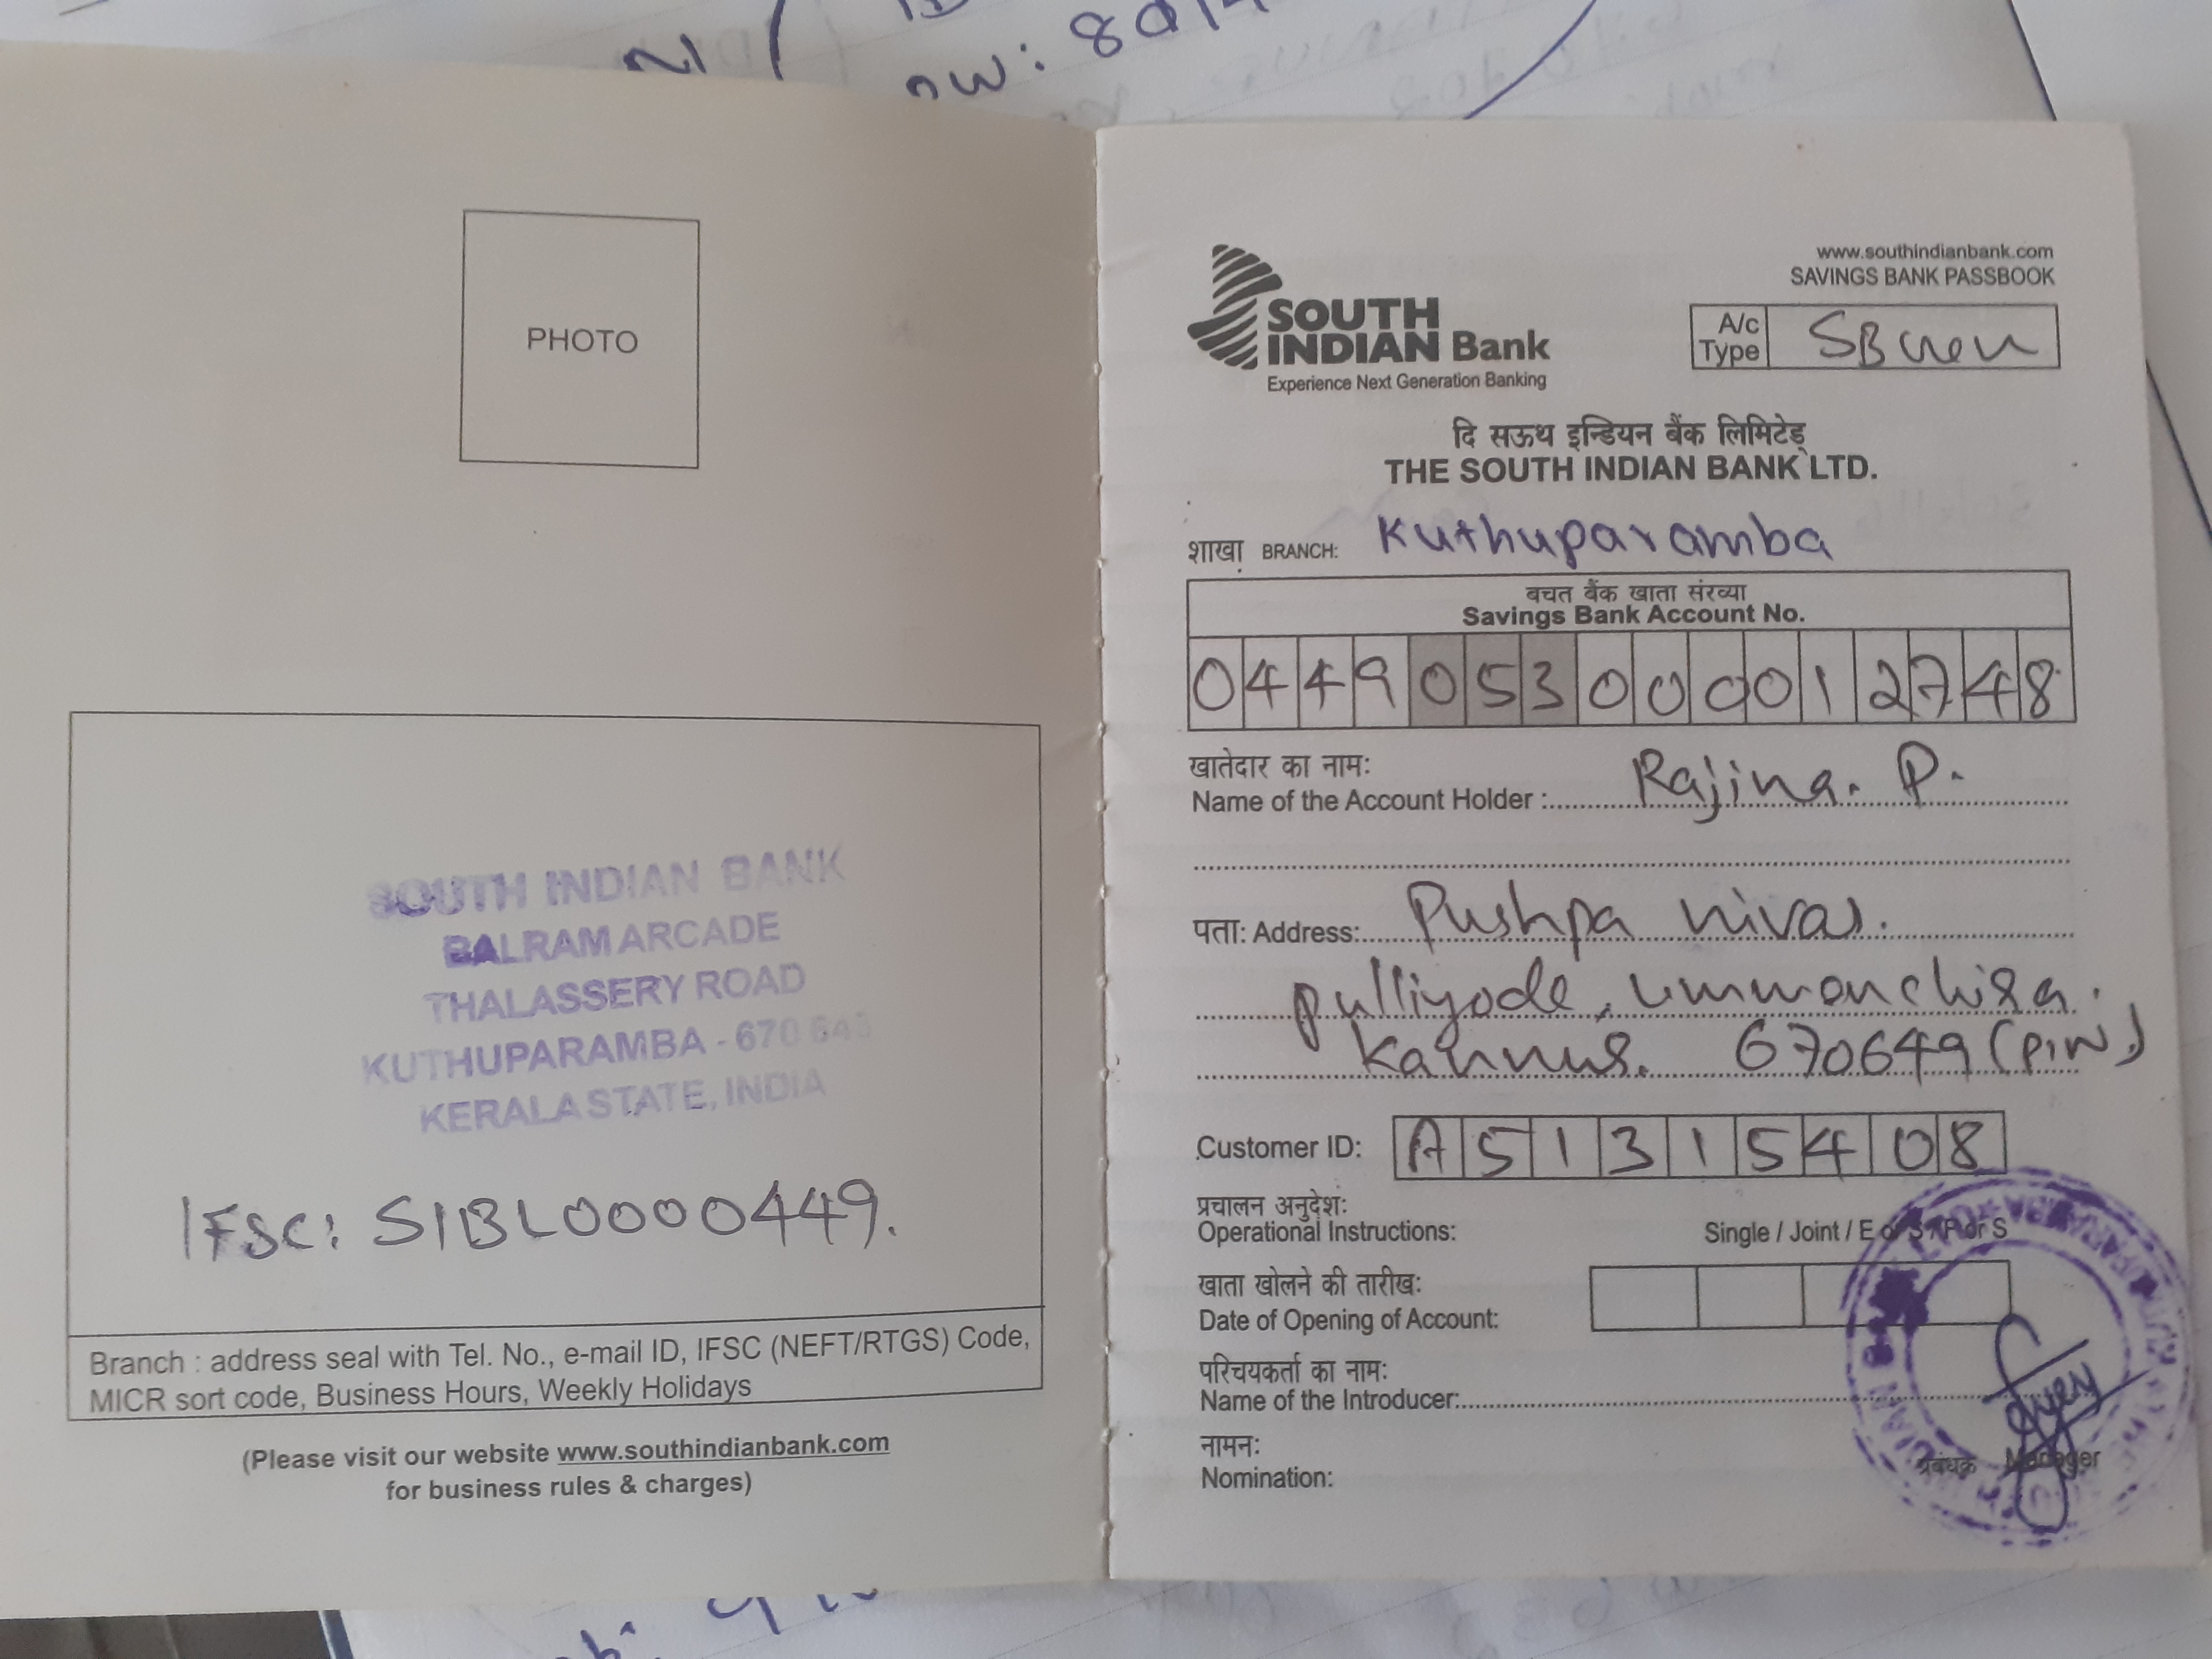 PHOTO
SOUTH INDIAN BANK
BALRAM ARCADE
THALASSERY ROAD
KUTHUPARAMBA - 670 643
KERALA STATE, INDIA
IFSC: SIBL0000449.
Branch : address seal with Tel. No., e-mail ID, IFSC (NEFT/RTGS) Code,
MICR sort code, Business Hours, Weekly Holidays
(Please visit our website www.southindianbank.com
for business rules & charges)
www.southindianbank.com
SAVINGS BANK PASSBOOK
SOUTH
INDIAN Bank
Experience Next Generation Banking
A/c
Type SB
दि सऊथ इन्डियन बैंक लिमिटेड्
THE SOUTH INDIAN BANK LTD.
शाखा BRANCH: Kuthuparamba
बचत बैंक खाता संख्या
Savings Bank Account No.
0449053000012748
खातेदार का नाम:
Name of the Account Holder : Rajina. P.
पता: Address: Pushpa nivas.
Pulliyode, Ummanchira.
Kannur. 670649 (PIN)
Customer ID: A51315408
प्रचालन अनुदेश:
Operational Instructions: Single / Joint / E or S / F or S
खाता खोलने की तारीख:
Date of Opening of Account:
परिचयकर्ता का नाम:
Name of the Introducer:
नामन:
Nomination:
प्रबंधक Manager